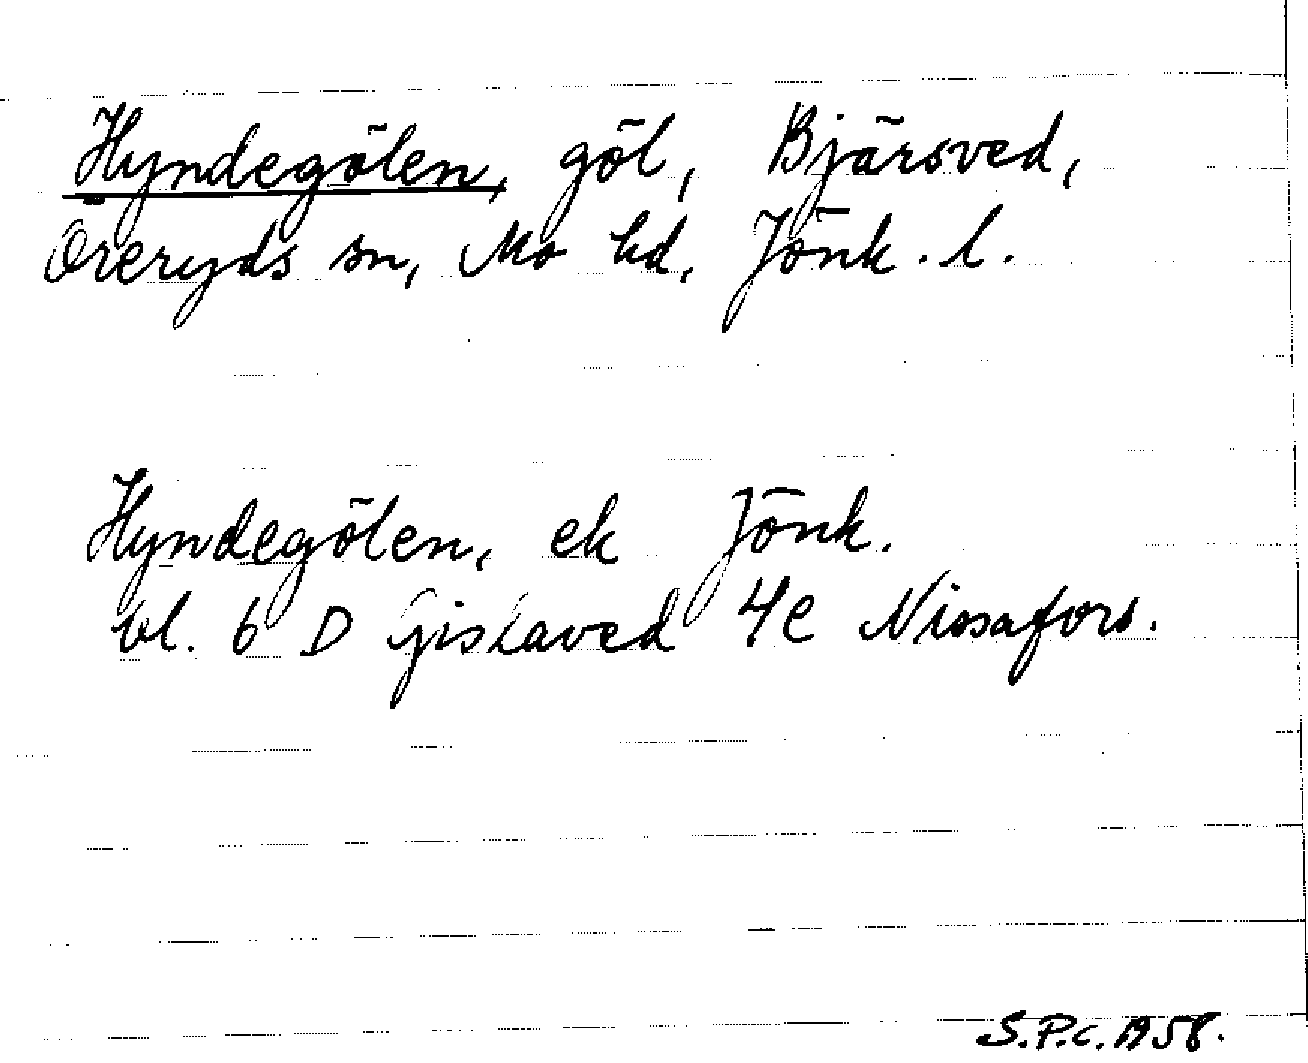 Hyndegölen, göl, Bjärsved,
Öreryds sn, Mo hd, Jönk. l.
Hyndegölen, ek Jönk.
bl. 6 D Gislaved 4e Nissafors.
S.P.c. 1958.